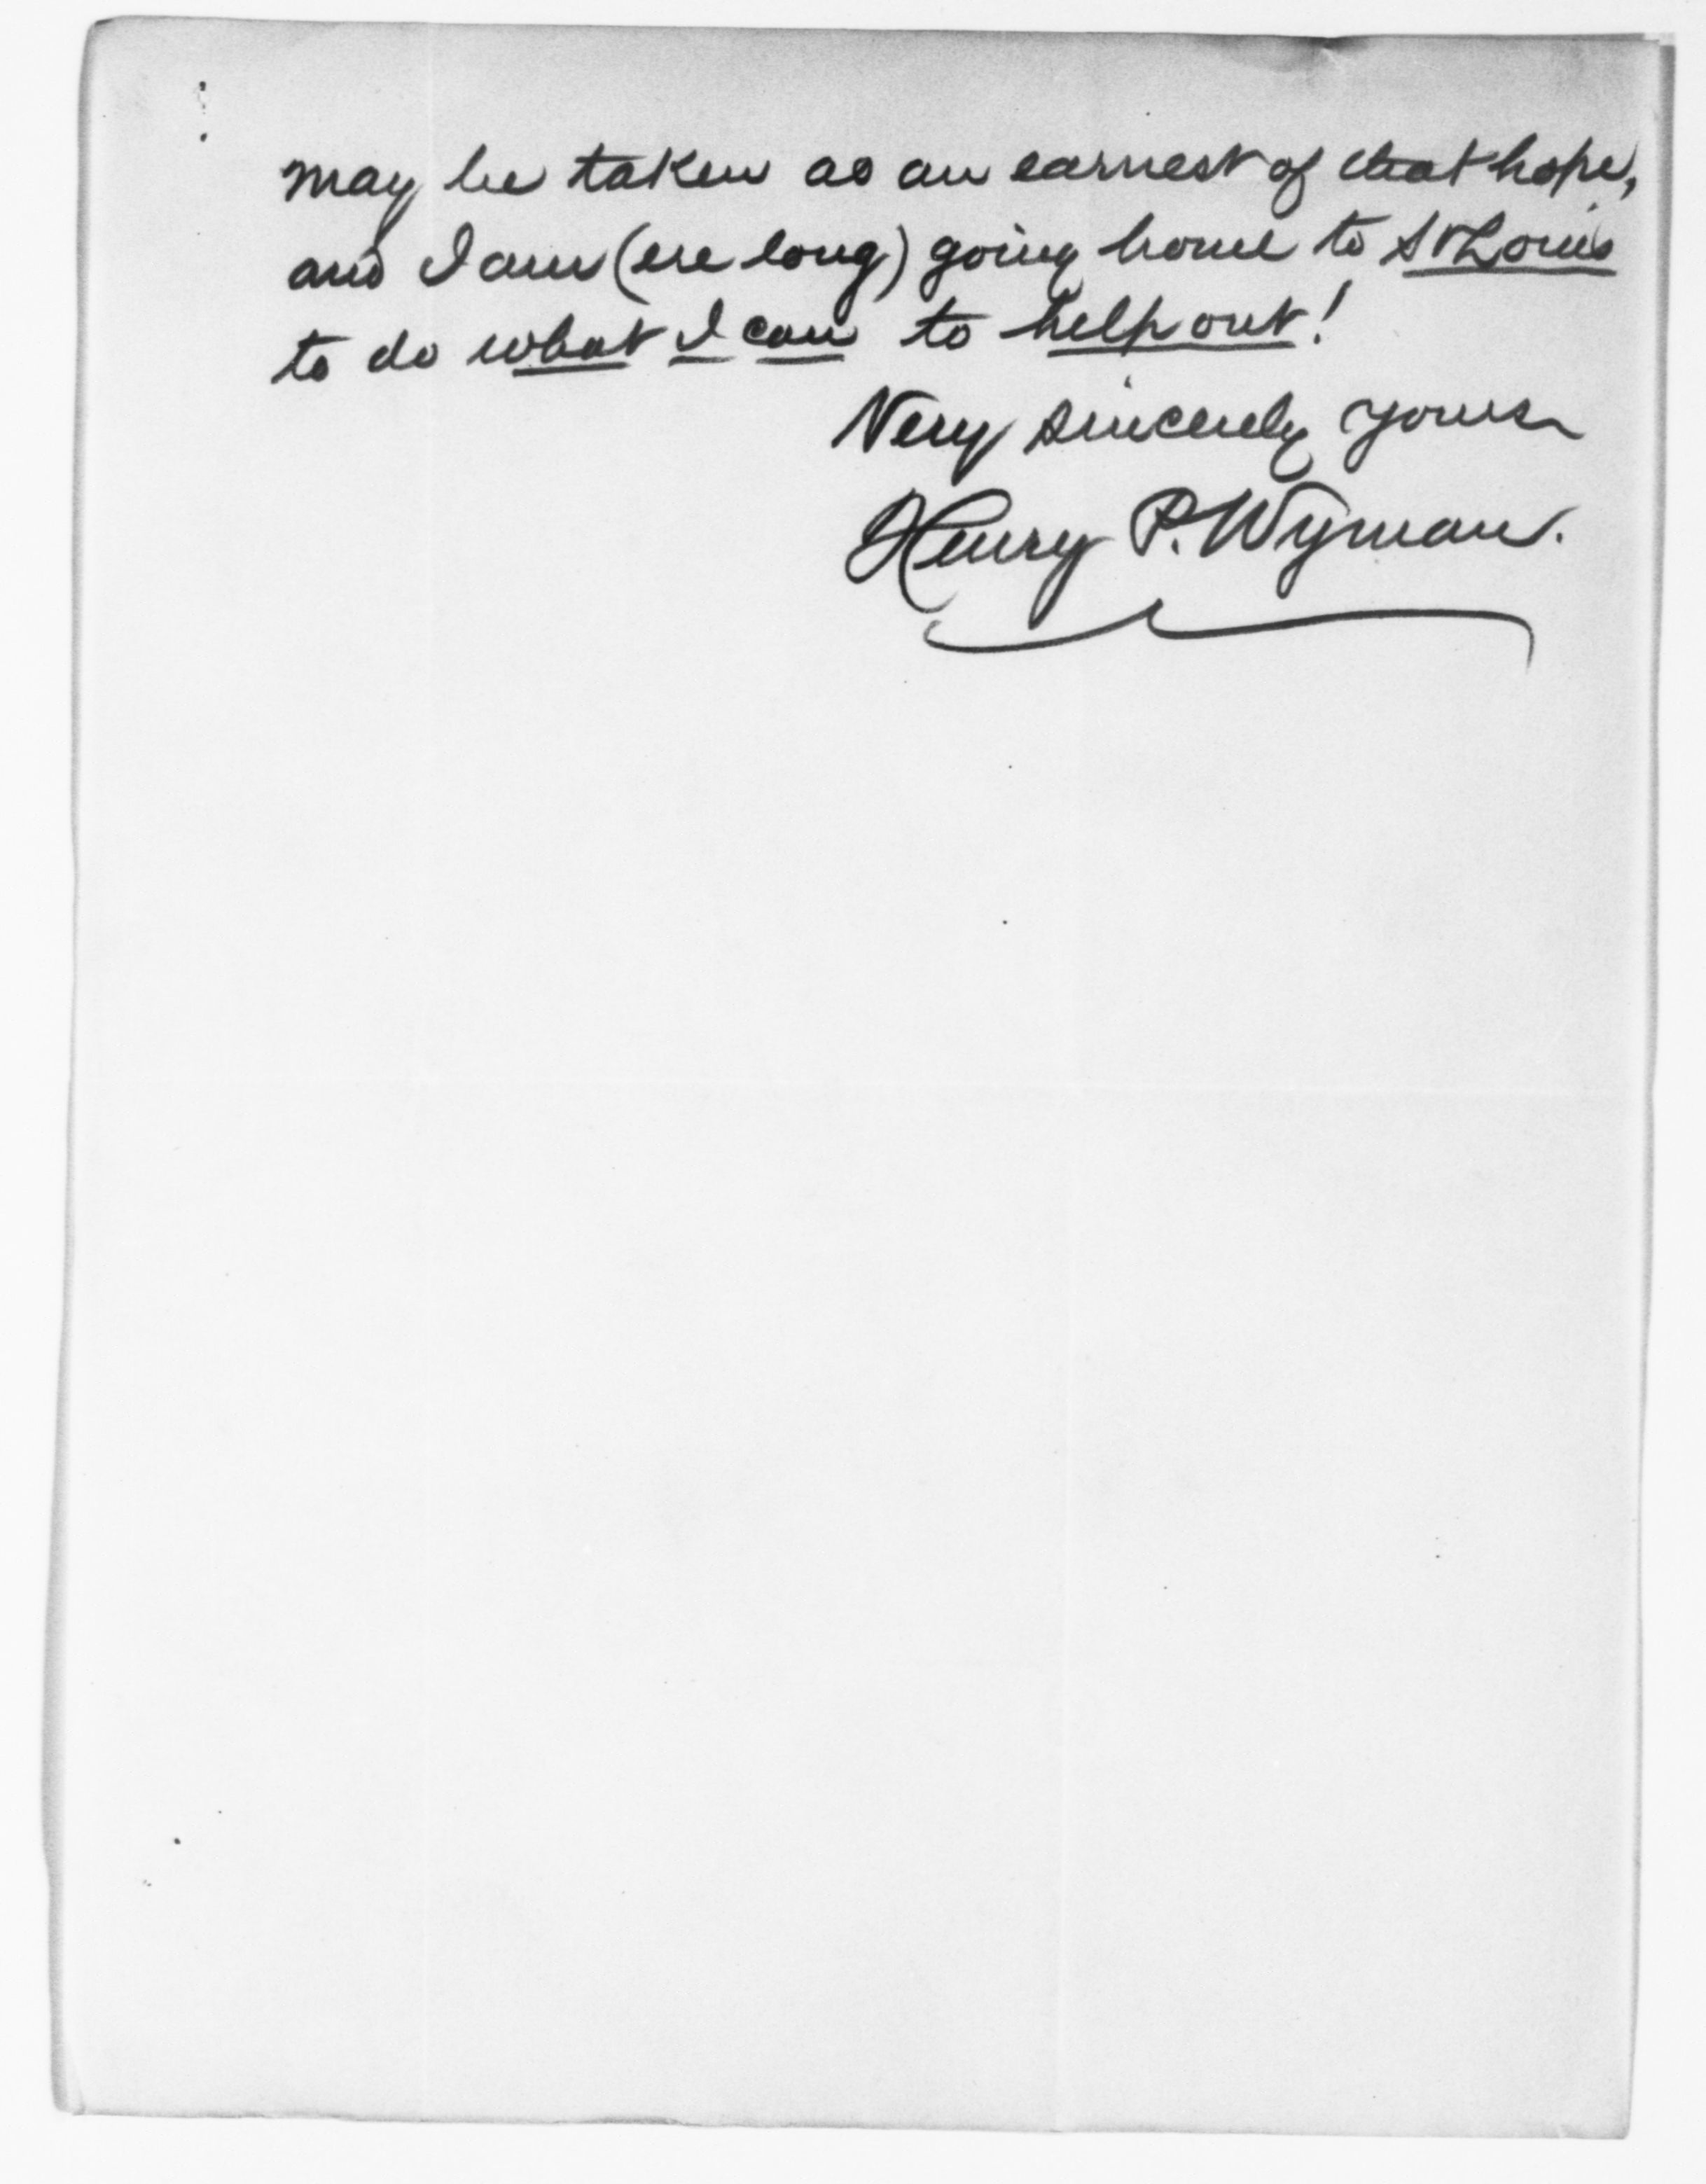 may be taken as an earnest of that hope,
and I am (ere long) going home to St Louis
to do what I can to help out!
Very sincerely yours
Henry P. Wyman.